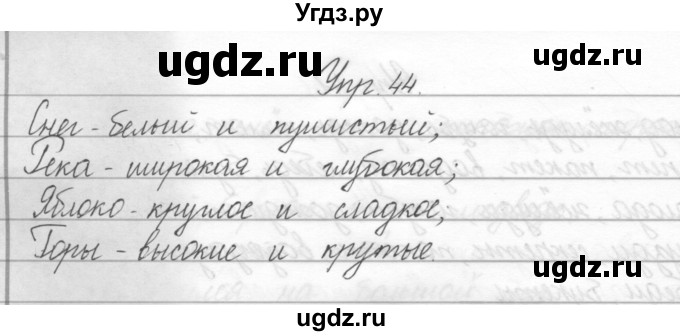 Угдз.ру
ugdz.ru
ugdz.ru
Упр. 44.
Снег - белый и пушистый;
Река - широкая и глубокая;
Яблоко - круглое и сладкое;
Горы - высокие и крутые.
ugdz.ru
ugdz.ru
ugdz.ru